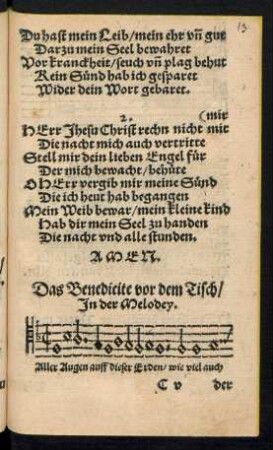 13
Du hast mein Leib/mein ehr vñ gut
Darzu mein Seel bewahret
Vor kranckheit/seuch vñ plag behut
Kein Sünd hab ich gesparet
Wider dein Wort gebaret.
2. (mir
HErr Jhesu Christ rechn nicht mit
Die nacht mich auch vertritte
Stell mir dein lieben Engel für
Der mich bewacht/behüte
O HErr vergib mir meine Sünd
Die ich heut hab begangen
Mein Weib bewar/mein kleine kind
Hab dir mein Seel zu handen
Die nacht vnd alle stunden.
AMEN.
Das Benedicite vor dem Tisch/
In der Melodey.
Aller Augen auff dieser Erden/wie viel auch
C v der